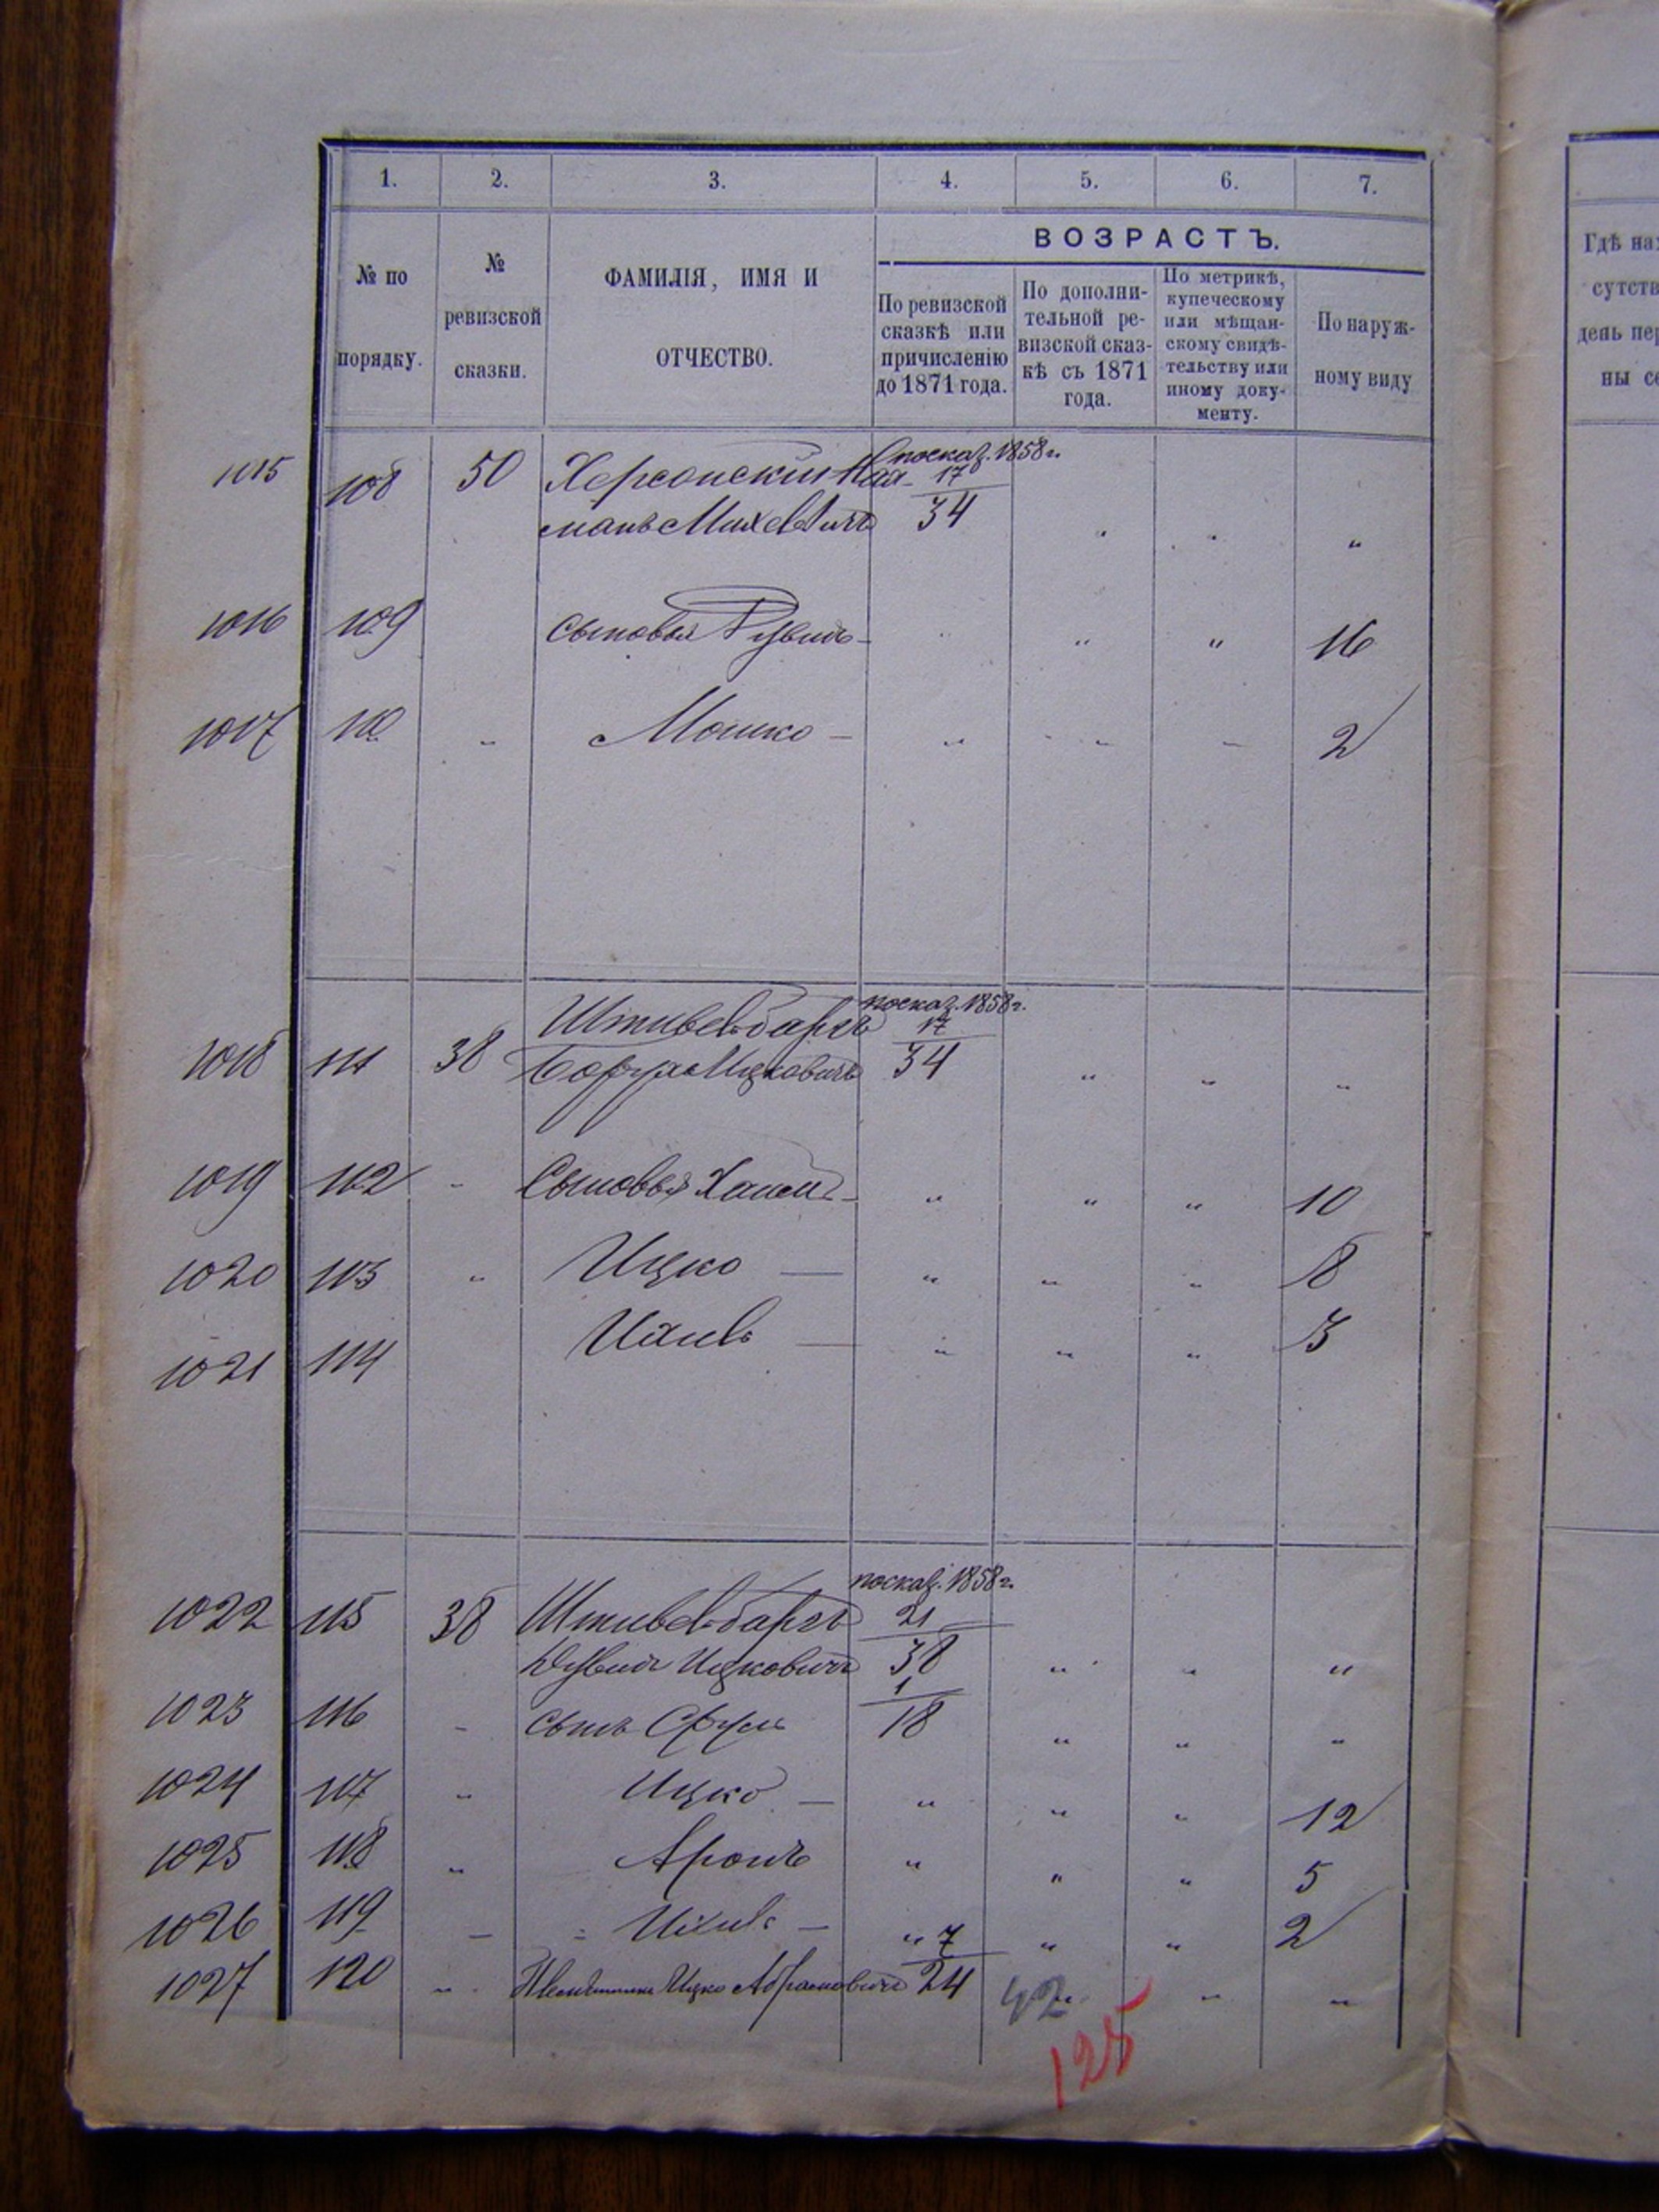 1. 2. 3. 4. 5. 6. 7.
№ по порядку.
№ ревизской сказки.
ФАМИЛІЯ, ИМЯ И ОТЧЕСТВО.
ВОЗРАСТЪ.
По ревизской сказкѣ или причисленію до 1871 года.
По дополнительной ревизской сказкѣ съ 1871 года.
По метрикѣ, купеческому или мѣщанскому свидѣтельству или иному документу.
По наружному виду
Гдѣ на
сутств
день пер
ны се
по сказ. 1858 г.
1015 108 50 Херсонскій На- 17
манъ 34 „ „ „
1016 109 Сыновья Рувинъ - „ „ „ 16
1017 110 „ Мошко - „ „ - 2
по сказ. 1858 г.
Штивельбаргъ 17
1018 111 38 Борухъ Ицковичъ 34 „ „ „
1019 112 - Сыновья Хаимъ - „ „ „ 10
1020 113 „ Ицко — „ „ „ 8
1021 114 Ихиль — „ „ „ 3
по сказ. 1858 г.
1022 115 38 Штивельбаргъ 21
Дувидъ Ицковичъ 38 „ „ „
1
1023 116 - сынъ Сруль 18 „ „ „
1024 117 „ Ицко - „ „ „ 12
1025 118 „ Аронъ „ „ „ 5
1026 119 — Ихиль - „ 7 „ „ 2
1027 120 „ Племянникъ Ицко Абрамовичъ 24 „ „ „
42
125